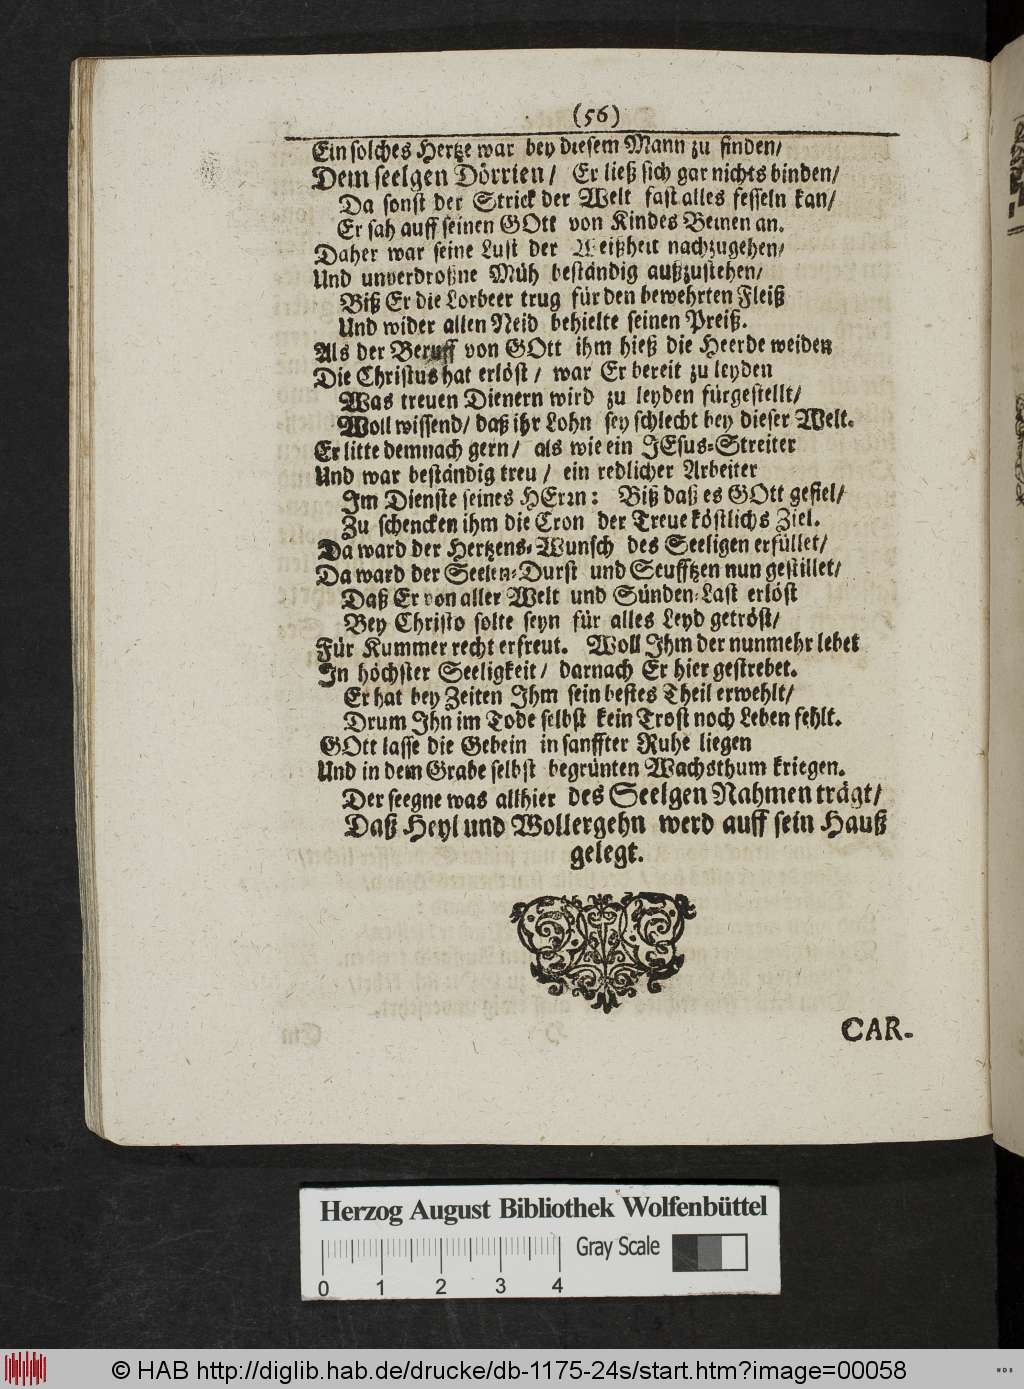 (56)
Ein solches Hertze war bey diesem Mann zu finden/
Dem seelgen Dörrien/ Er ließ sich gar nichts binden/
Da sonst der Strick der Welt fast alles fesseln kan/
Er sah auff seinen GOtt von Kindes Beinen an.
Daher war seine Lust der Weißheit nachzugehen/
Und unverdroßne Müh beständig außzustehen/
Biß Er die Lorbeer trug für den bewehrten Fleiß
Und wider allen Neid behielte seinen Preiß.
Als der Beruff von GOtt ihm hieß die Heerde weiden
Die Christus hat erlöst/ war Er bereit zu leyden
Was treuen Dienern wird zu leyden fürgestellt/
Woll wissend/ daß ihr Lohn sey schlecht bey dieser Welt.
Er litte demnach gern/ als wie ein JEsus-Streiter
Und war beständig treu/ ein redlicher Arbeiter
Im Dienste seines HErrn: Biß daß es GOtt gefiel/
Zu schencken ihm die Cron der Treue köstlichs Ziel.
Da ward der Hertzens-Wunsch des Seeligen erfüllet/
Da ward der Seelen-Durst und Seufftzen nun gestillet/
Daß Er von aller Welt und Sünden-Last erlöst
Bey Christo solte seyn für alles Leyd getröst/
Für Kummer recht erfreut. Woll Ihm der nunmehr lebet
In höchster Seeligkeit/ darnach Er hier gestrebet.
Er hat bey Zeiten Ihm sein bestes Theil erwehlt/
Drum Ihn im Tode selbst kein Trost noch Leben fehlt.
GOtt lasse die Gebein in sanffter Ruhe liegen
Und in dem Grabe selbst begrünten Wachsthum kriegen.
Der seegne was allhier des Seelgen Nahmen trägt/
Daß Heyl und Wollergehn werd auff sein Hauß
gelegt.
CAR-
Herzog August Bibliothek Wolfenbüttel
Gray Scale
0 1 2 3 4
© HAB http://diglib.hab.de/drucke/db-1175-24s/start.htm?image=00058